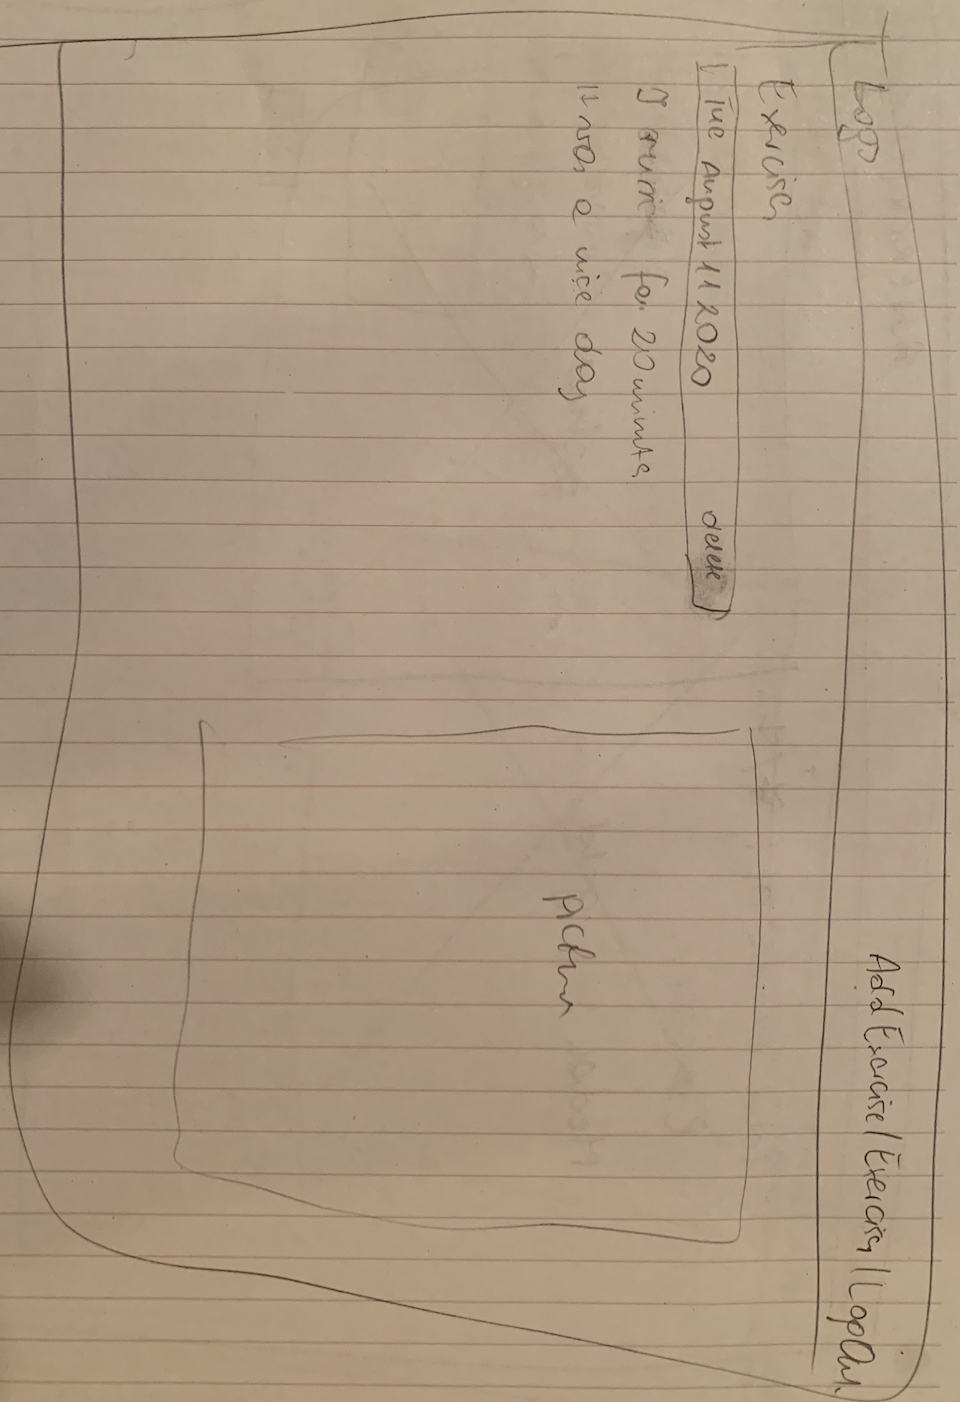 Logo
Add Exercise / Exercises / LogOut
Exercises
Tue August 11 2020 delete
I for 20 minutes
It was a nice day
Picture